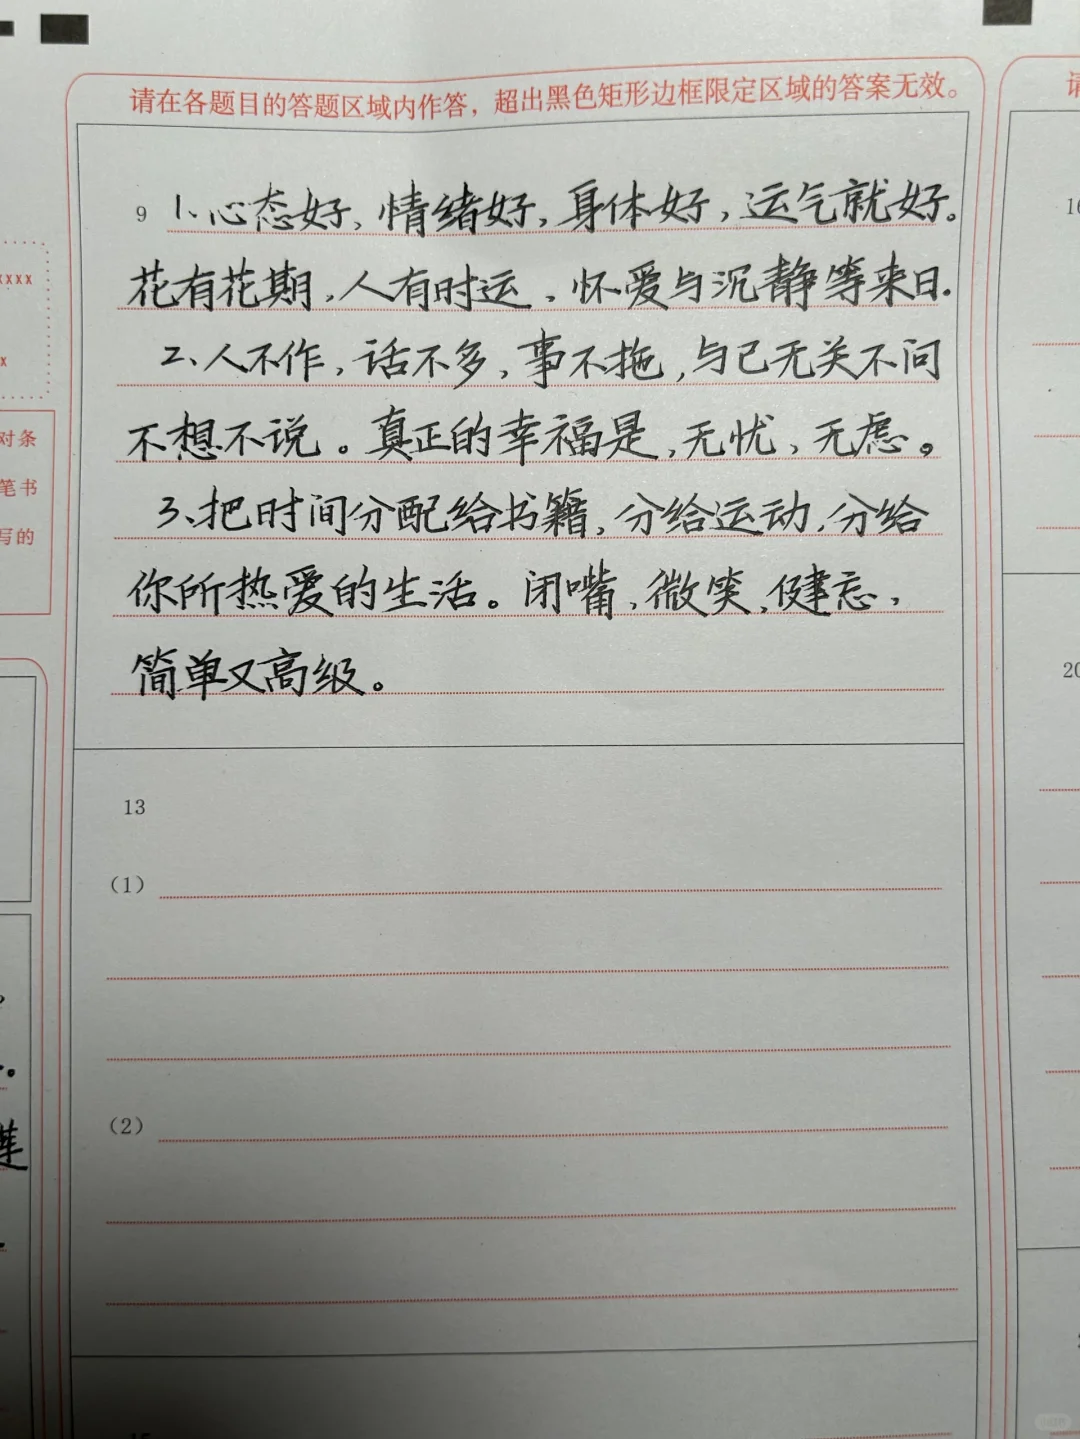 请在各题目的答题区域内作答，超出黑色矩形边框限定区域的答案无效。
9 1、心态好，情绪好，身体好，运气就好。
花有花期，人有时运，怀爱与沉静等来日.
2、人不作，话不多，事不拖，与己无关不问
不想不说。真正的幸福是，无忧，无虑。
3、把时间分配给书籍，分给运动，分给
你所热爱的生活。闭嘴，微笑，健忘，
简单又高级。
13
（1）
（2）
xxxx
x
对条
笔书
写的
莲
请
16
20
15